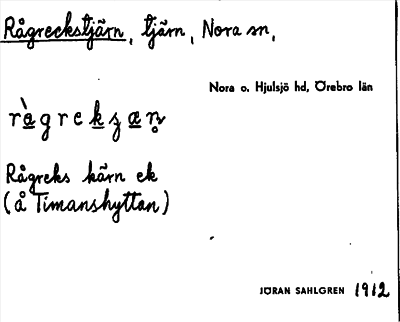 Rågreckstjärn, tjärn, Nora sn,
Nora o. Hjulsjö hd, Örebro län
Rågreks kärn ek
(å Timanshyttan)
JÖRAN SAHLGREN 1912